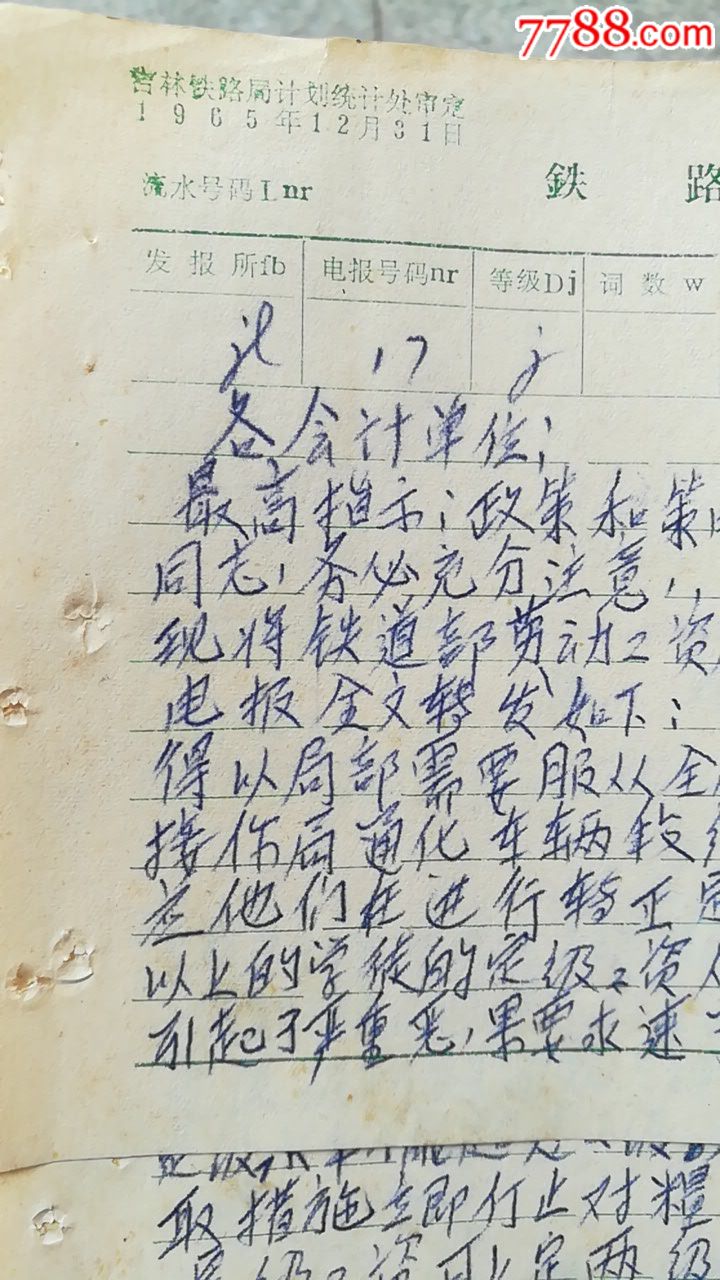 7788.com
吉林铁路局计划统计处审定
1965年12月31日
流水号码Lnr
鉄 路
发报所fb 电报号码nr 等级Dj 词数w
17
各会计单位;
最高指示;政策和策
同志,务必充分注意,,
现将铁道部劳动工资
电报全文转发如下;
得以局部需要服从全
接你局通化车辆段
他们在进行转正定
以上的学徒的定级工资
引起了严重恶果要求速
取措施立即停止对粮
定两级